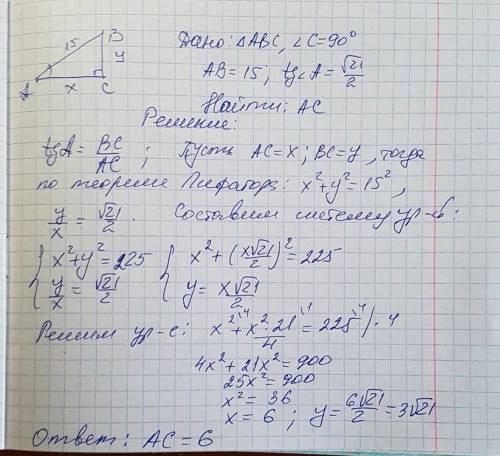 B
15
y
A
x
C
Дано: △ABC, ∠C=90°
AB=15; tg∠A=√21/2
Найти: AC
Решение:
tgA=BC/AC; Пусть AC=x; BC=y, тогда
по теореме Пифагора: x²+y²=15²,
y/x=√21/2. Составим систему ур-в:
{x²+y²=225 {x²+(x√21/2)²=225
y/x=√21/2 y=x√21/2
Решим ур-е: x²\4+x²·21/4\1=225\4/·4
4x²+21x²=900
25x²=900
x²=36
x=6; y=6√21/2=3√21
Ответ: AC=6